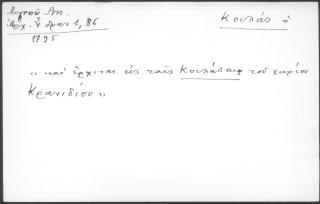 Λιγνοῦ Αν.
Ἀρχ. Ὕδρας 1, 86
1795
Κουλάς ὁ
« καὶ ἔρχεται εἰς ταῖς Κουλάδαις τοῦ χωρίου
Κρανιδίου »